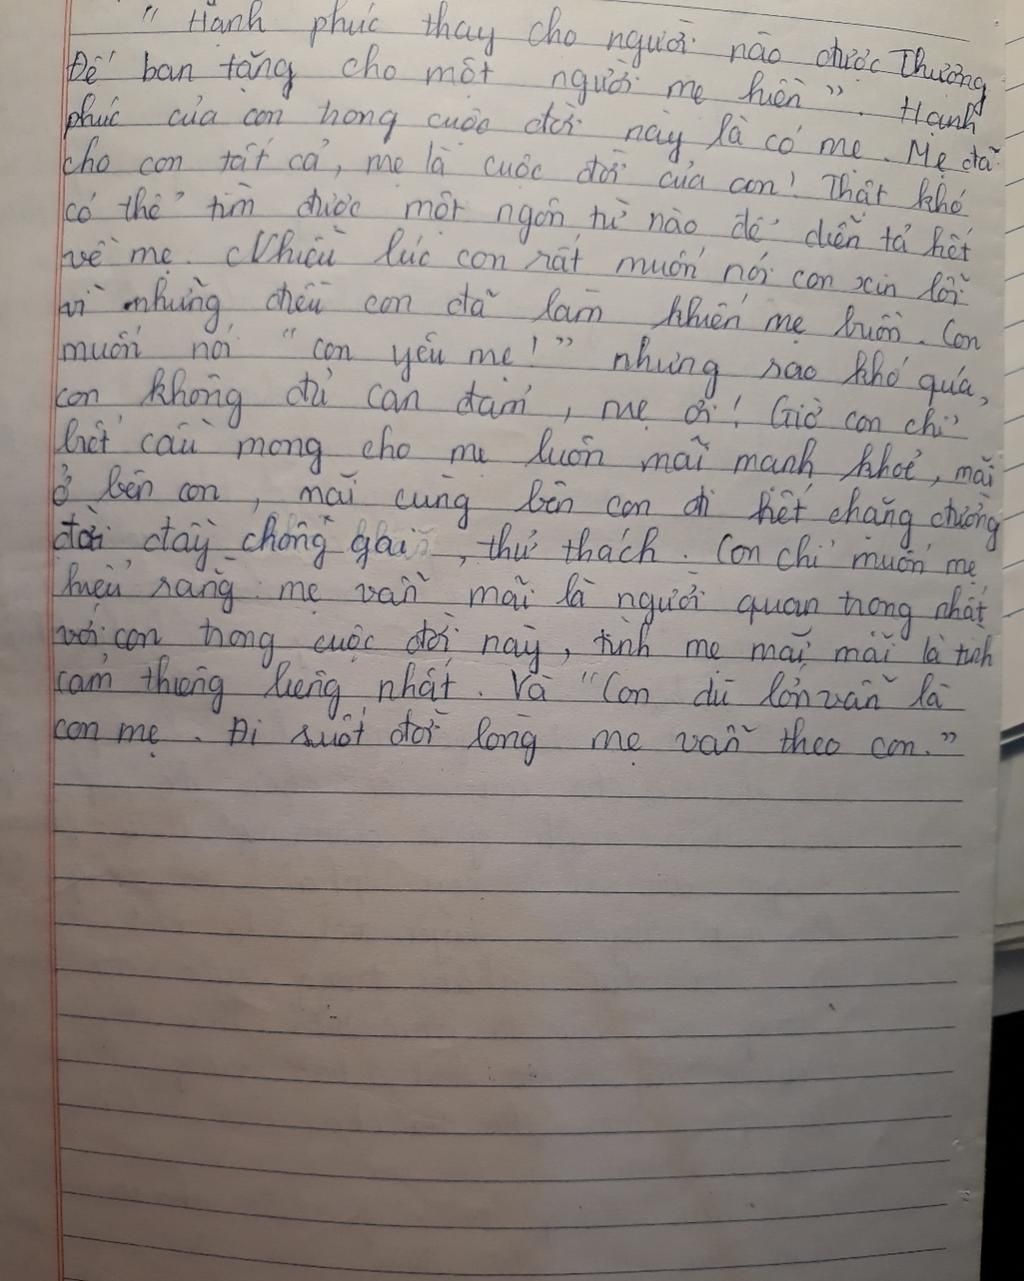 " Hạnh phúc thay cho người nào được Thượng
Đế ban tặng cho một người mẹ hiền ". Hạnh
phúc của con trong cuộc đời này là có mẹ. Mẹ đã
cho con tất cả, mẹ là cuộc đời của con! Thật khó
có thể tìm được một ngôn từ nào để diễn tả hết
về mẹ. Nhiều lúc con rất muốn nói con xin lỗi
vì những điều con đã làm khiến mẹ buồn. Con
muốn nói " con yêu mẹ! " nhưng sao khó quá,
con không đủ can đảm, mẹ ơi! Giờ con chỉ
biết cầu mong cho mẹ luôn mãi mạnh khoẻ, mãi
ở bên con, mãi cùng bên con đi hết chặng đường
đời đầy chông gai, thử thách. Con chỉ muốn mẹ
hiểu rằng: mẹ vẫn mãi là người quan trọng nhất
với con trong cuộc đời này, tình mẹ mãi mãi là tình
cảm thiêng liêng nhất. Và " Con dù lớn vẫn là
con mẹ. Đi suốt đời lòng mẹ vẫn theo con."